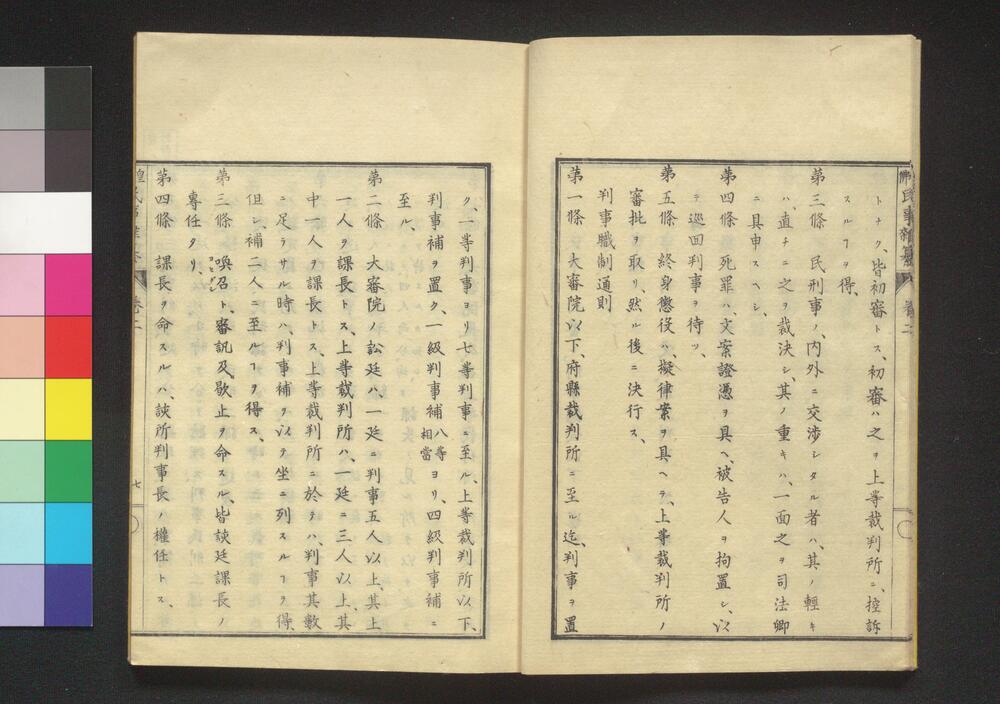 トナク、皆初審トス、初審ハ之ヲ上等裁判所ニ、控訴
スルヿヲ得、
第三條 民刑事ノ、内外ニ交渉シタル者ハ、其ノ輕キ
ハ、直チニ之ヲ裁決シ、其ノ重キハ、一面之ヲ司法卿
ニ具申スヘシ、
第四條 死罪ハ、文案證憑ヲ具ヘ、被告人ヲ拘置シ、以
テ巡回判事ヲ待ツ、
第五條 終身懲役ハ、擬律案ヲ具ヘテ、上等裁判所ノ
審批ヲ取リ、然ル後ニ決行ス、
判事職制通則
第一條 大審院以下、府縣裁判所ニ至ル迄、判事ヲ置
ク、一等判事ヨリ七等判事ニ至ル、上等裁判所以下、
判事補ヲ置ク、一級判事補 八等相當 ヨリ、四級判事補ニ
至ル、
第二條 大審院ノ訟廷ハ、一廷ニ判事五人以上、其上
一人ヲ課長トス、上等裁判所ハ、一廷ニ三人以上、其
中一人ヲ課長トス、上等裁判所ニ於テハ、判事其數
ニ足ラサル時ハ、判事補ヲ以テ坐ニ列スルヿヲ得、
但シ、補二人ニ至ルヿヲ得ス、
第三條 喚召ト、審訊及、歇止ヲ命スル、皆該廷課長ノ
專任タリ、
第四條 課長ヲ命スルハ、該所判事長ノ權任トス、
卷二
七